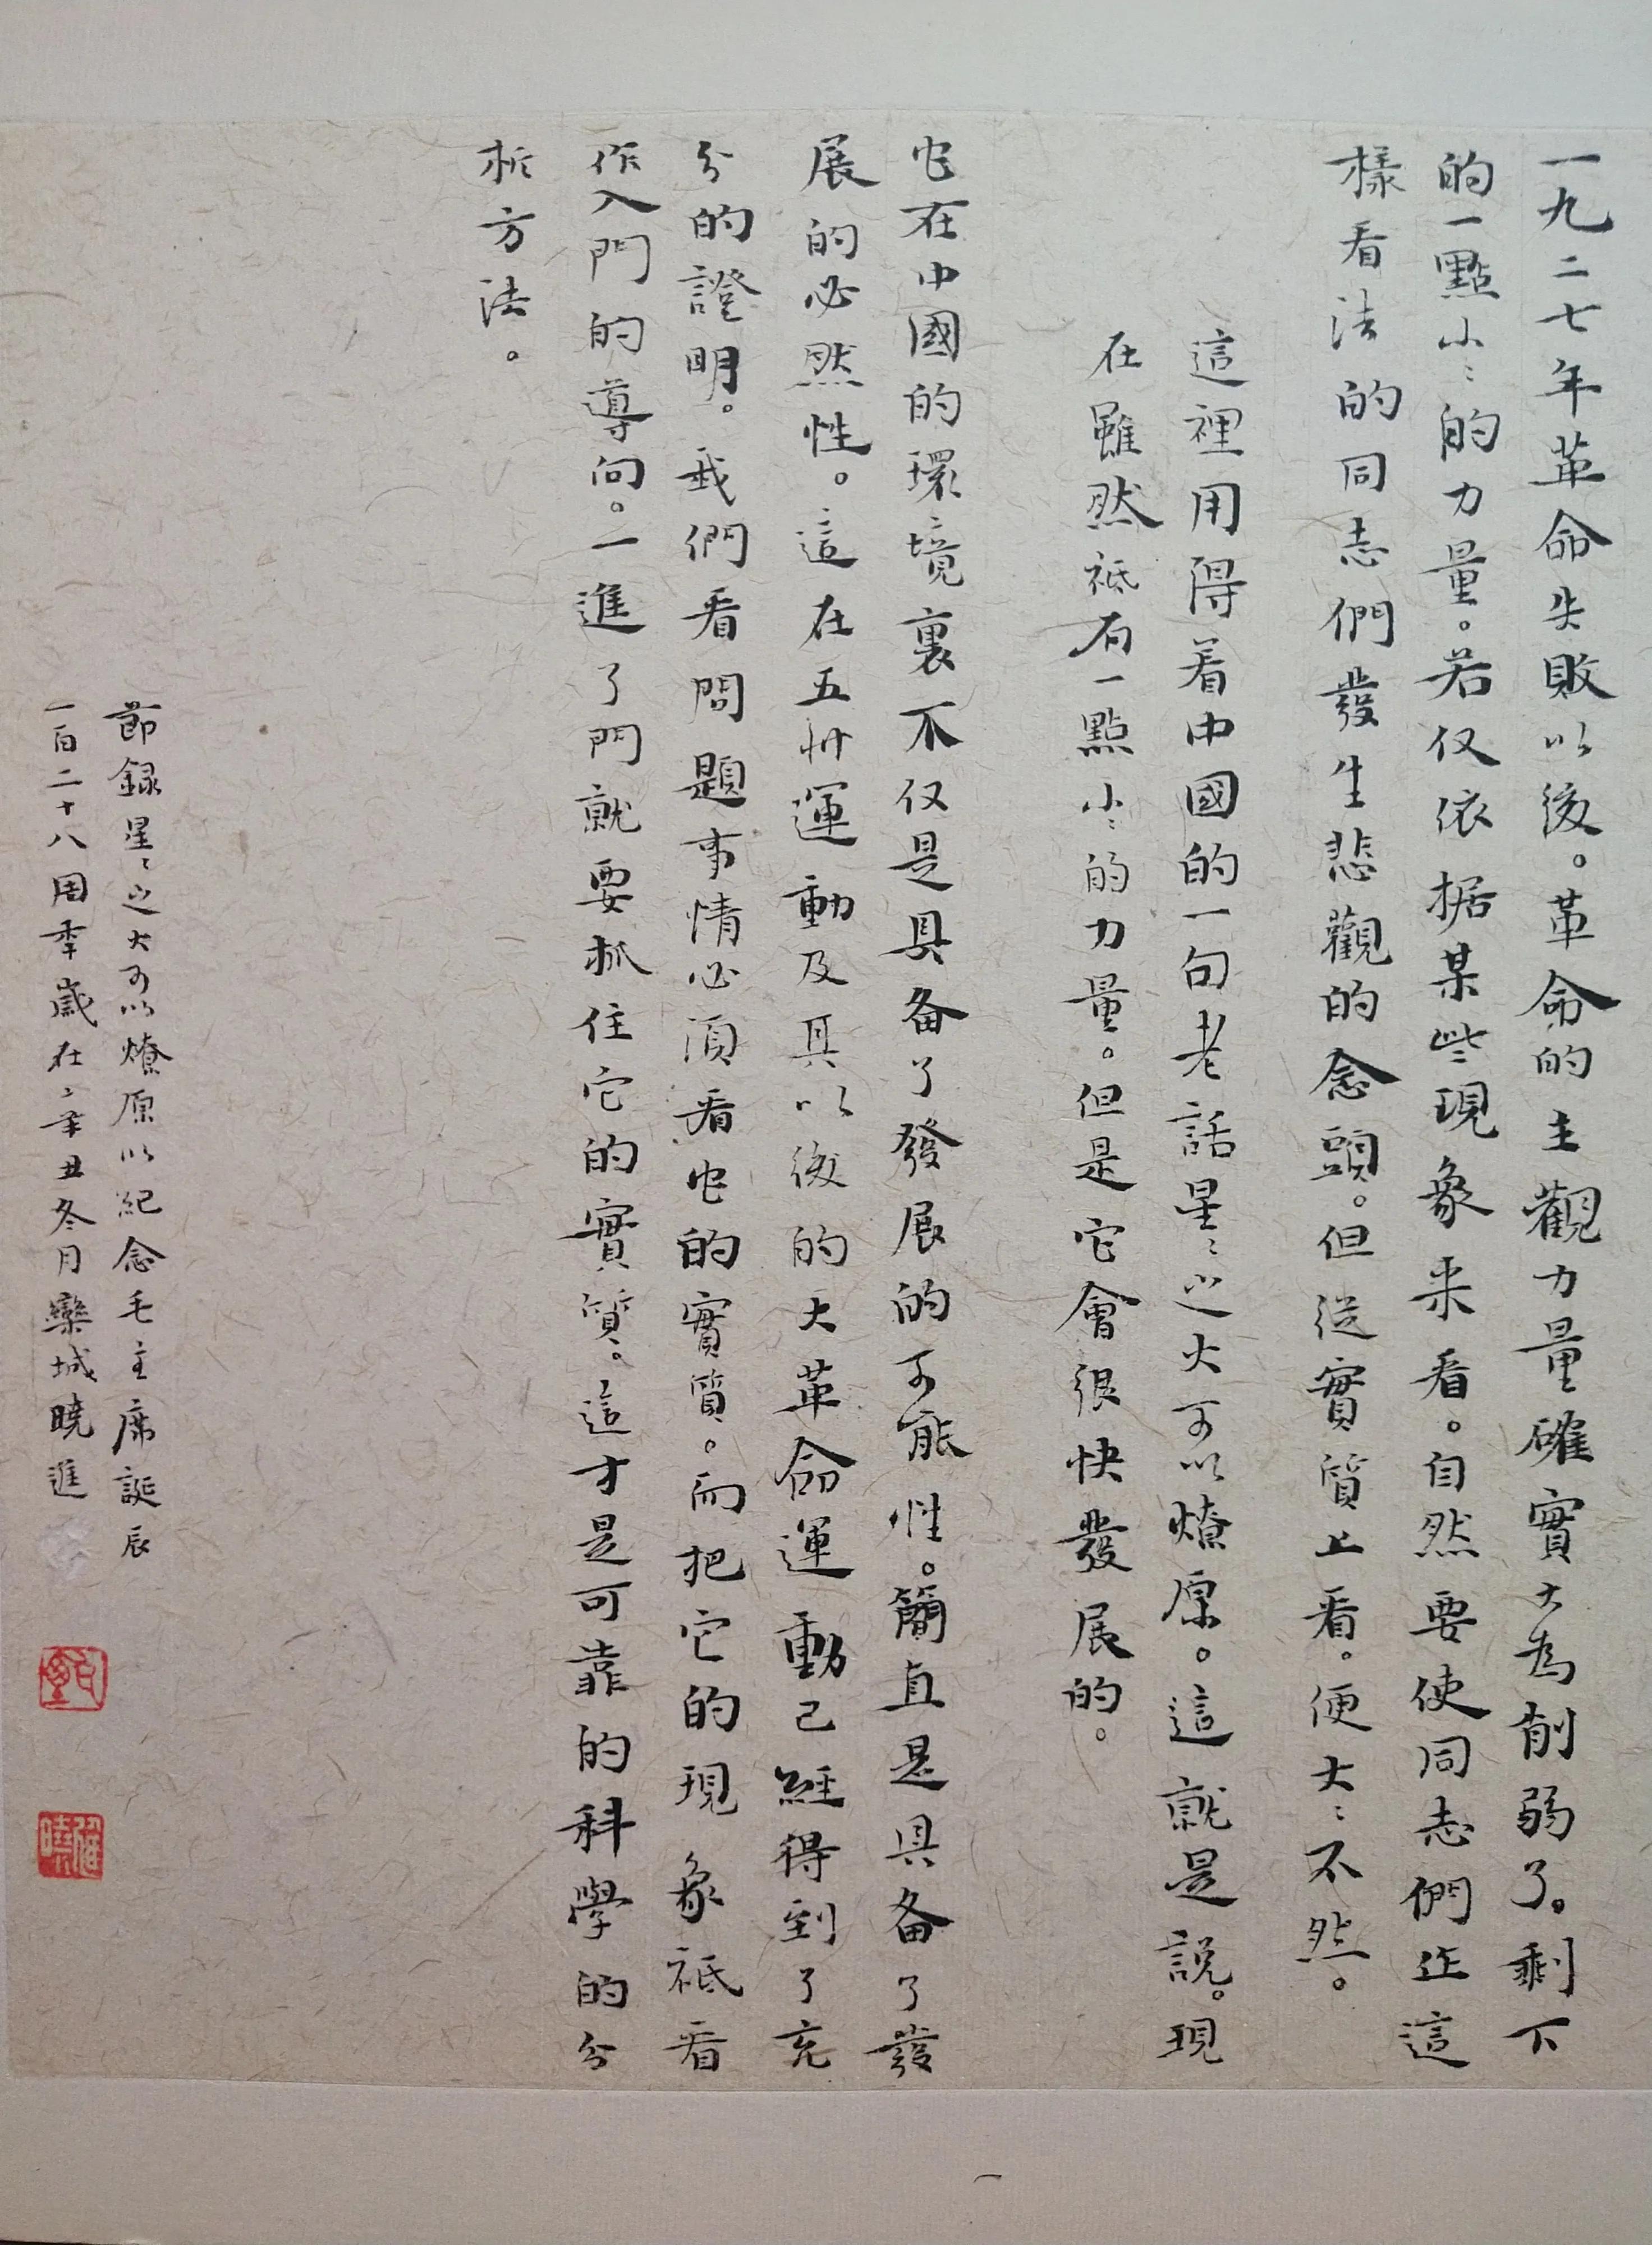 一九二七年革命失敗以後。革命的主觀力量確實大為削弱了。剩下
的一點小〻的力量。若仅依据某些現象来看。自然要使同志們作這
樣看法的同志們發生悲觀的念頭。但從實質上看。便大〻不然。
這裡用得着中國的一句老話星〻之火可以燎原。這就是說。現
在雖然祗有一點小〻的力量。但是它會很快發展的。
它在中國的環境裏不仅是具备了發展的可能性。簡直是具备了發
展的必然性。這在五卅運動及其以後的大革命運動已經得到了充
分的證明。我們看問題事情必須看它的實質。而把它的現象祗看
作入門的導向。一進了門就要抓住它的實質。這才是可靠的科學的分
析方法。
節録星〻之火可以燎原以紀念毛主席誕辰
一百二十八周季歲在辛丑冬月欒城曉進